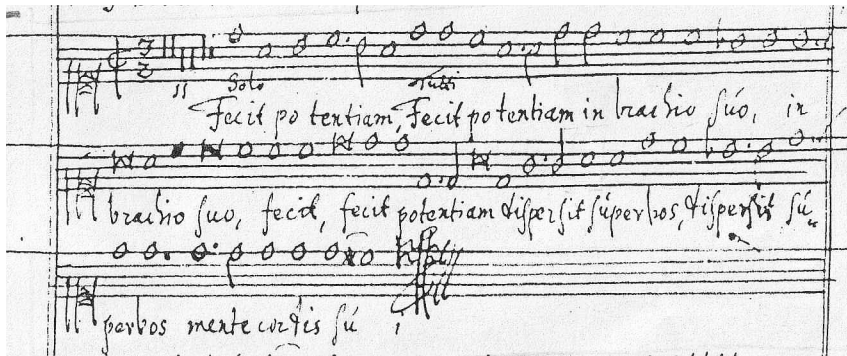 Solo Tutti
Fecit po tentiam, Fecit potentiam in brachio súo, in
brachio suo, fecit, fecit potentiam dispersit súperbos, dispersit sú
perbos mente cordis sú i